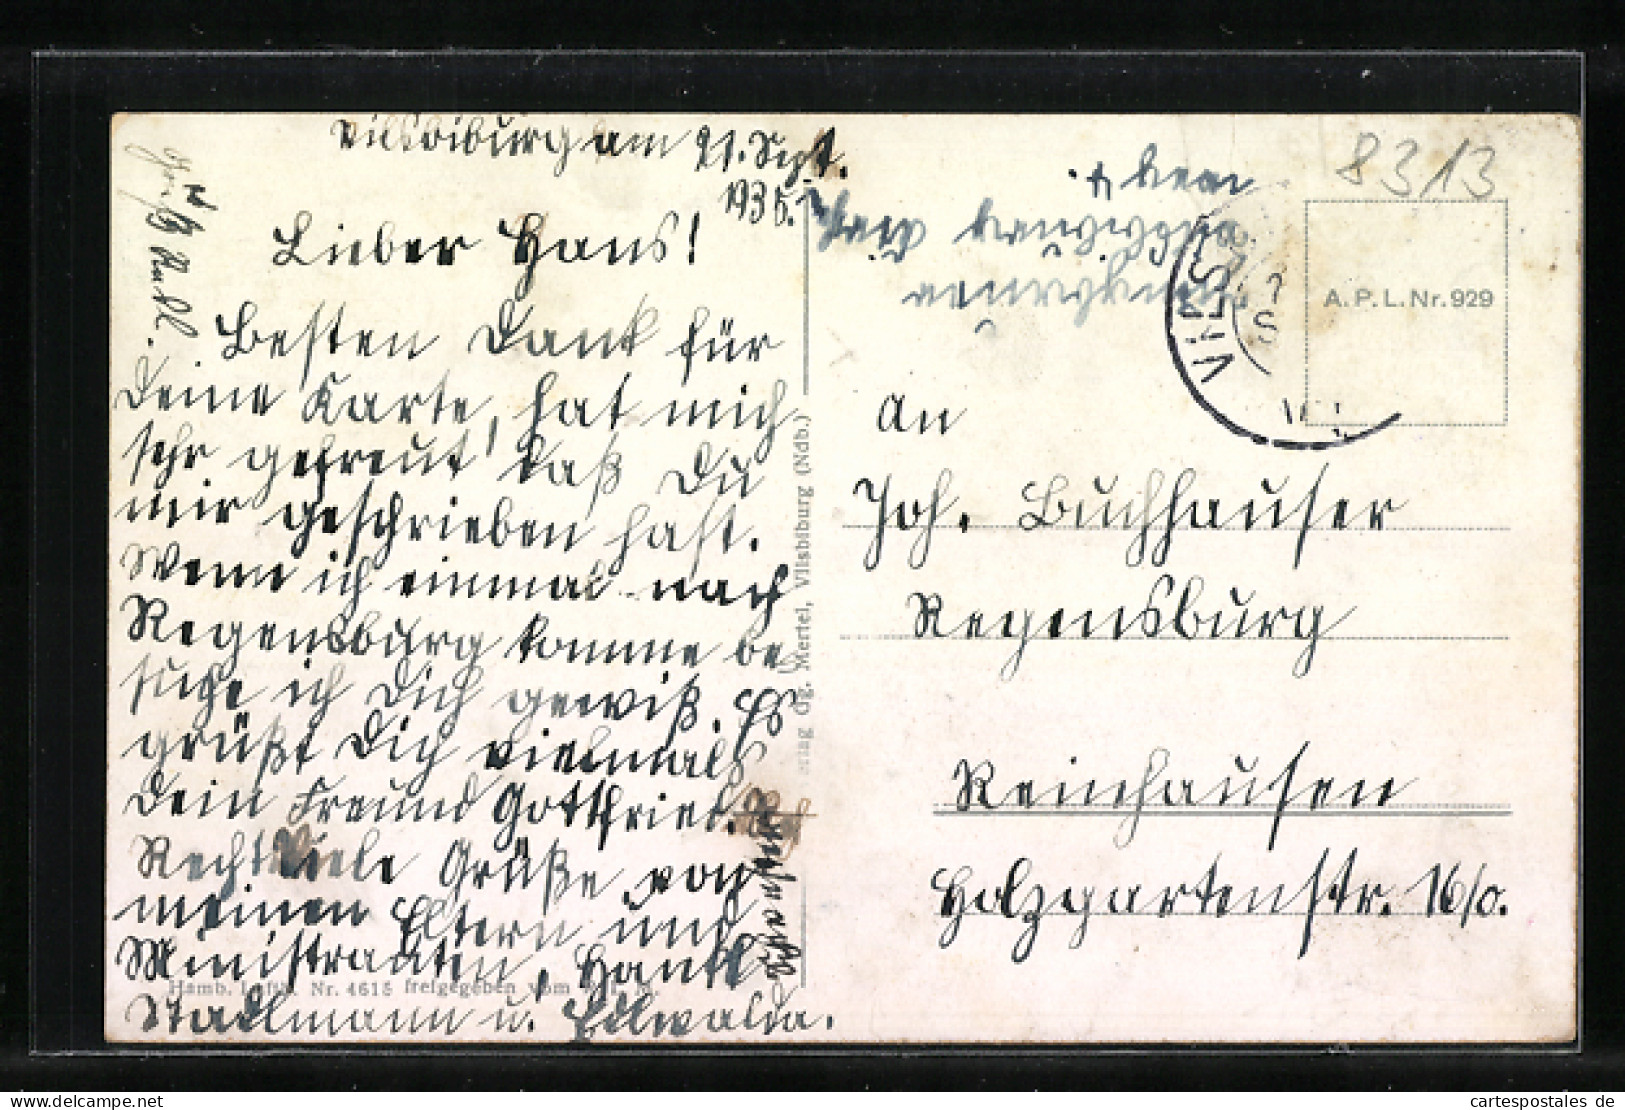 Vilsbiburg am 21. Sept.
1935.
Lieber Hans!
Besten Dank für
Deine Karte, hat mich
sehr gefreut, daß Du
mir geschrieben hast.
Wenn ich einmal nach
Regensburg komme be
suche ich Dich gewiß. Es
grüßt Dich vielmals
Dein Freund Gottfried.
Recht viele Grüße von
meinen Eltern und
Ministranten, Hantl
Stadlmann u. Edlwalda.
8313
A.P.L.Nr. 929
An
Joh. Buchhauser
Regensburg
Reinhausen
Holzgartenstr. 16/0.
Verlag Gg. Mertel, Vilsbiburg (Ndb.)
Hamb. Luftb. Nr. 4615 freigegeben vom R. L. M.
cartespostales de